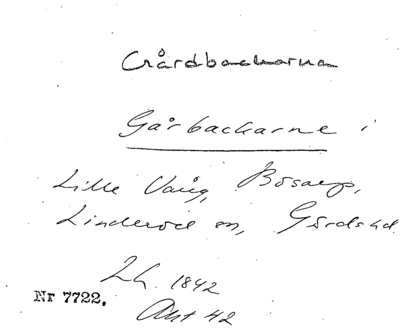 Gårdbackarna
Gårbackarne i
Lille Vång, Bosarp,
Linderöd sn, Gärds hd.
Lh. 1842
Nr 7722. Akt 42